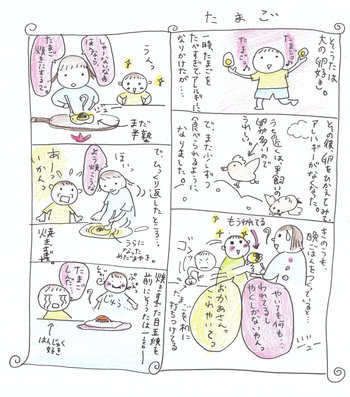 たまご
そうたは、
大の卵好き。
たまごっ
たまごっ
一時、たまごを
たべすぎてアレルギーに
なりかけたが…
その後、卵をひかえてみて
アレルギーがなくなった。
うちの近くは、平飼いの
卵が多いので
うれしい。
で、また少しずつ
食べられるように
なりました。
きのうも
晩ごはんをつくっていると…
やいても何も…
われてるし
やくしかないやんっ
もうわれてる
おかあさんっ
これやいてっ
コンッ
たまごを机に
打ちつけてる
うんっ
しゃあないなあ
ほなら、
たまご
焼きにするで。
まだ
半塾
で、ひっくり返したところ…
ほいっ
よう焼こうな
あーっ
いかんっ
うらに
なった
めだまやき
焼きすぎた目玉焼を
前にそうたは一言…
たまご
しんだ…
はんじゅく
好き